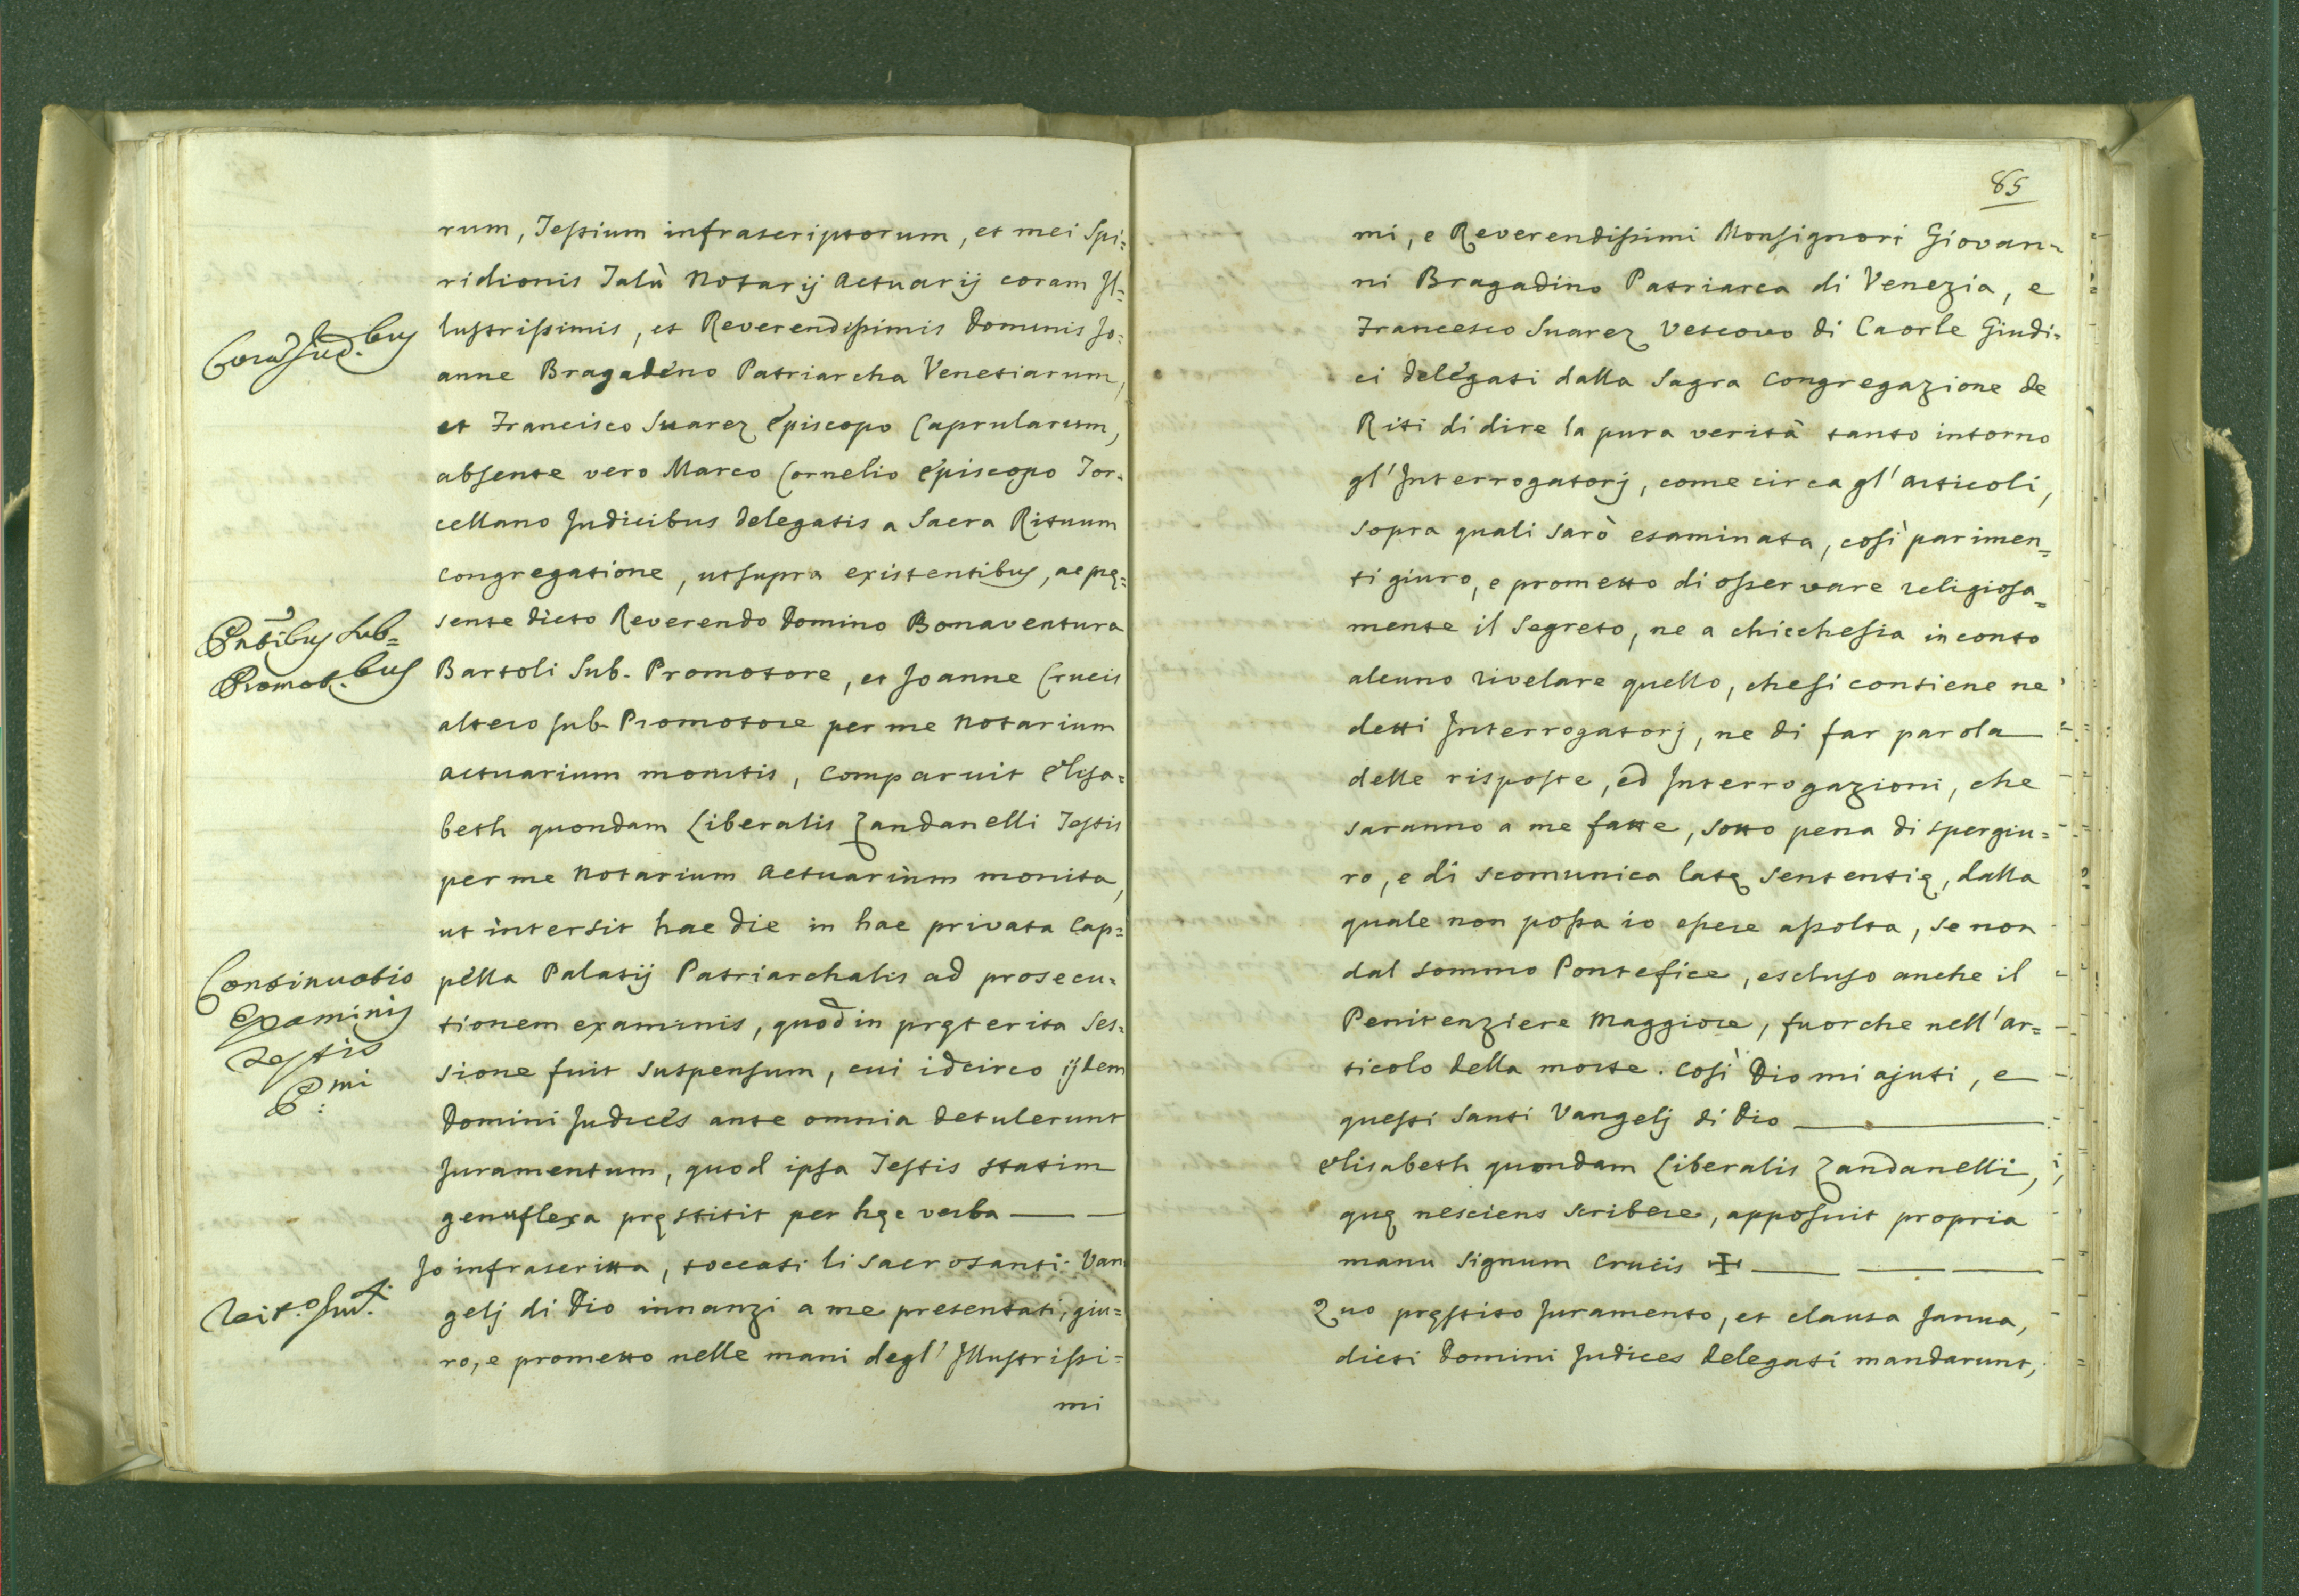 rum, Testium infrascriptorum, et mei Spi=
ridionis Talù Notarij Actuarij coram Il=
lustrissimis, et Reverendissimis Dominis Jo=
anne Bragadeno Patriarcha Venetiarum,
et Francisco Suarez Episcopo Caprularum,
absente vero Marco Cornelio Episcopo Tor=
cellano Judicibus delegatis a Sacra Rituum
Congregatione, utsupra existentibus, ac prę=
sente dicto Reverendo Domino Bonaventura
Bartoli Sub-Promotore, et Joanne Crucis
altero sub Promotore per me Notarium
Actuarium monitis, Comparuit Elisa=
beth quondam Liberalis Zandanelli Testis
per me Notarium Actuarium monita,
ut intersit hac die in hac privata Cap=
pella Palatij Patriarchalis ad prosecu=
tionem examinis, quod in pręterita Ses=
sione fuit suspensum, cui idcirco ijdem
Domini Judices ante omnia detulerunt
Juramentum, quod ipsa Testis statim
genuflexa pręstitit per hęc verba
Jo infrascritta, toccati li Sacrosanti Van
gelj di Dio innanzi a me presentati, giu=
ro, e prometto nelle mani degl' Illustrissi=
mi
Corã Jud.bus
Pñtibus Sub=
Promot.bus
Continuatio
Examinis
Testis
P.mi
85
mi, e Reverendissimi Monsignori Giovan=
ni Bragadino Patriarca di Venezia, e
Francesco Suarez Vescovo di Caorle Giudi=
ci delegati dalla Sagra Congregazione de
Riti di dire la pura verità tanto intorno
gl' Interrogatorj, come circa gl' articoli,
sopra quali sarò esaminata, così parimen=
ti giuro, e prometto di osservare religiosa=
mente il Segreto, ne a chicchesia in conto
alcuno rivelare quello, che si contiene ne
detti Interrogatorj, ne di far parola
delle risposte, ed Interrogazioni, che
saranno a me fatte, sotto pena di spergiu=
ro, e di scomunica latę sententię, dalla
quale non possa io essere assolta, se non
dal sommo Pontefice, escluso anche il
Penitenziere Maggiore, fuorche nell' ar=
ticolo della morte. Così Dio mi ajuti, e
questi Santi Vangelj di Dio
Elisabeth quondam Liberalis Zandanelli,
quę nesciens scribere, apposuit propria
manu Signum Crucis ✠
Quo pręstito Juramento, et clausa Janua,
dicti Domini Judices Delegati mandarunt,